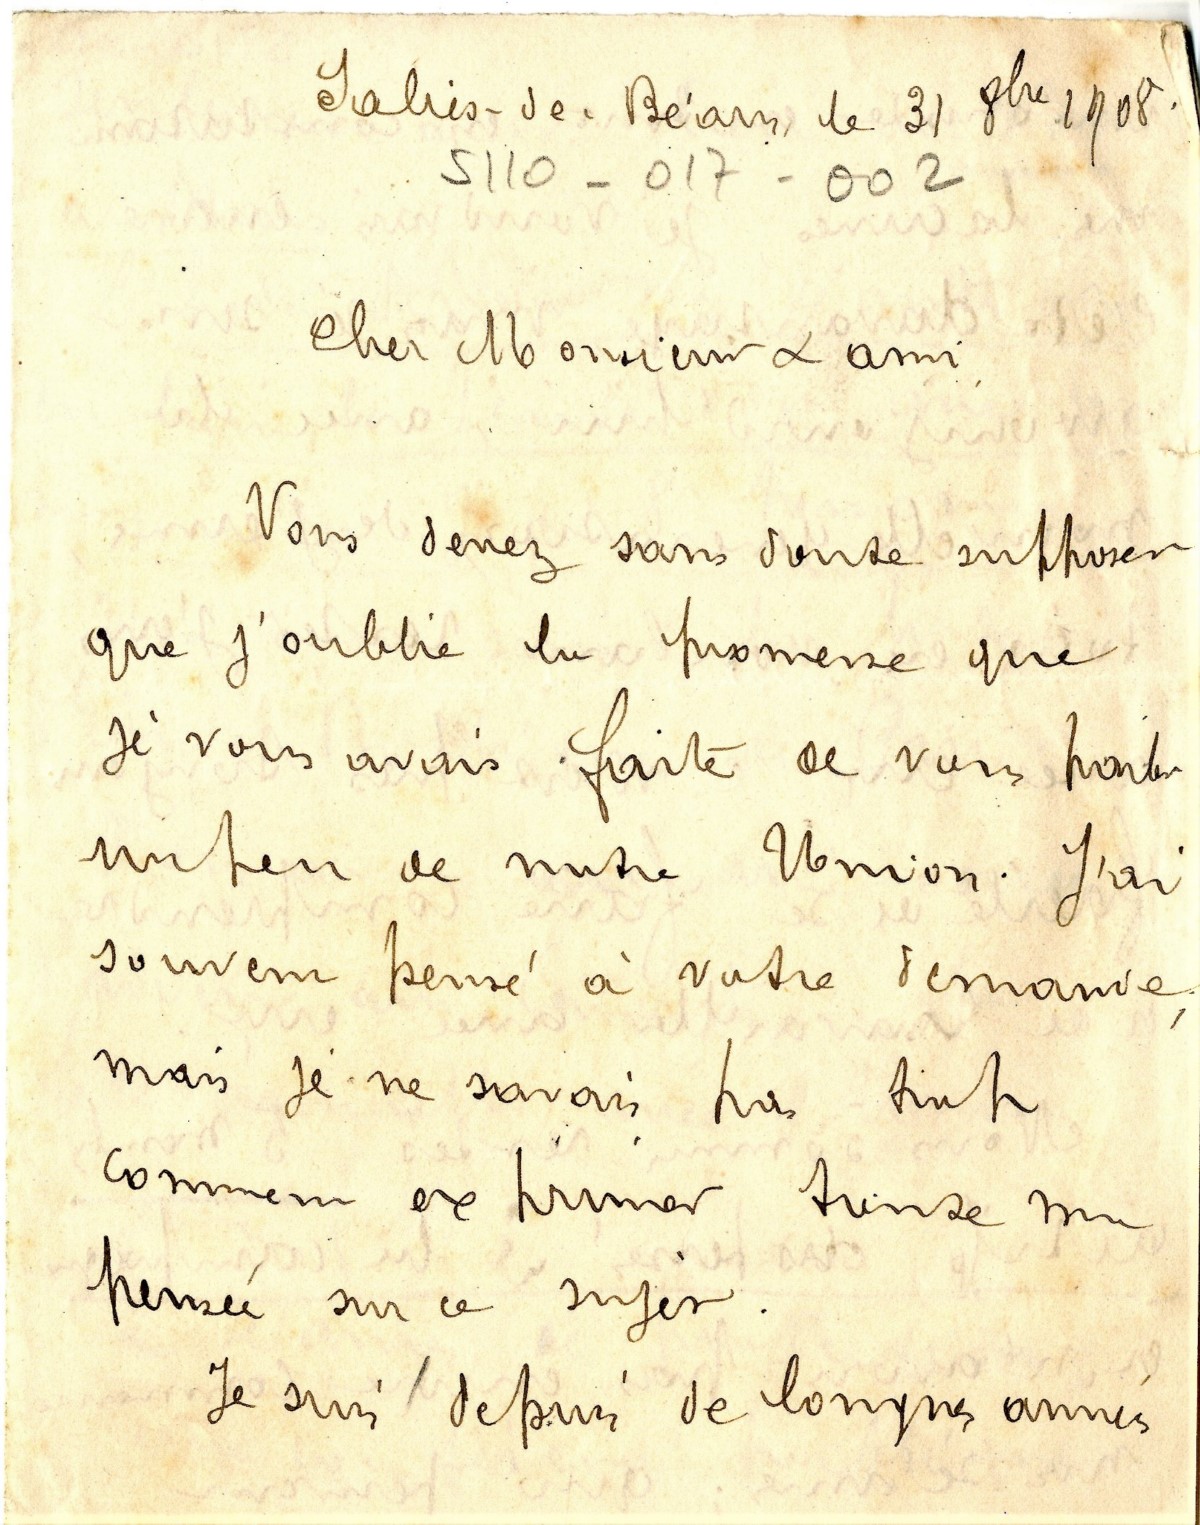 Salies-de-Béarn, le 31 8bre 1908.
5110-017-002
Cher Monsieur & ami,
Vous devez sans doute supposer
que j'oublie la promesse que
je vous avais faite de vous parler
un peu de notre Union. J'ai
souvent pensé à votre demande,
mais je ne savais pas trop
comment exprimer toute ma
pensée sur ce sujet.
Je suis depuis de longues années